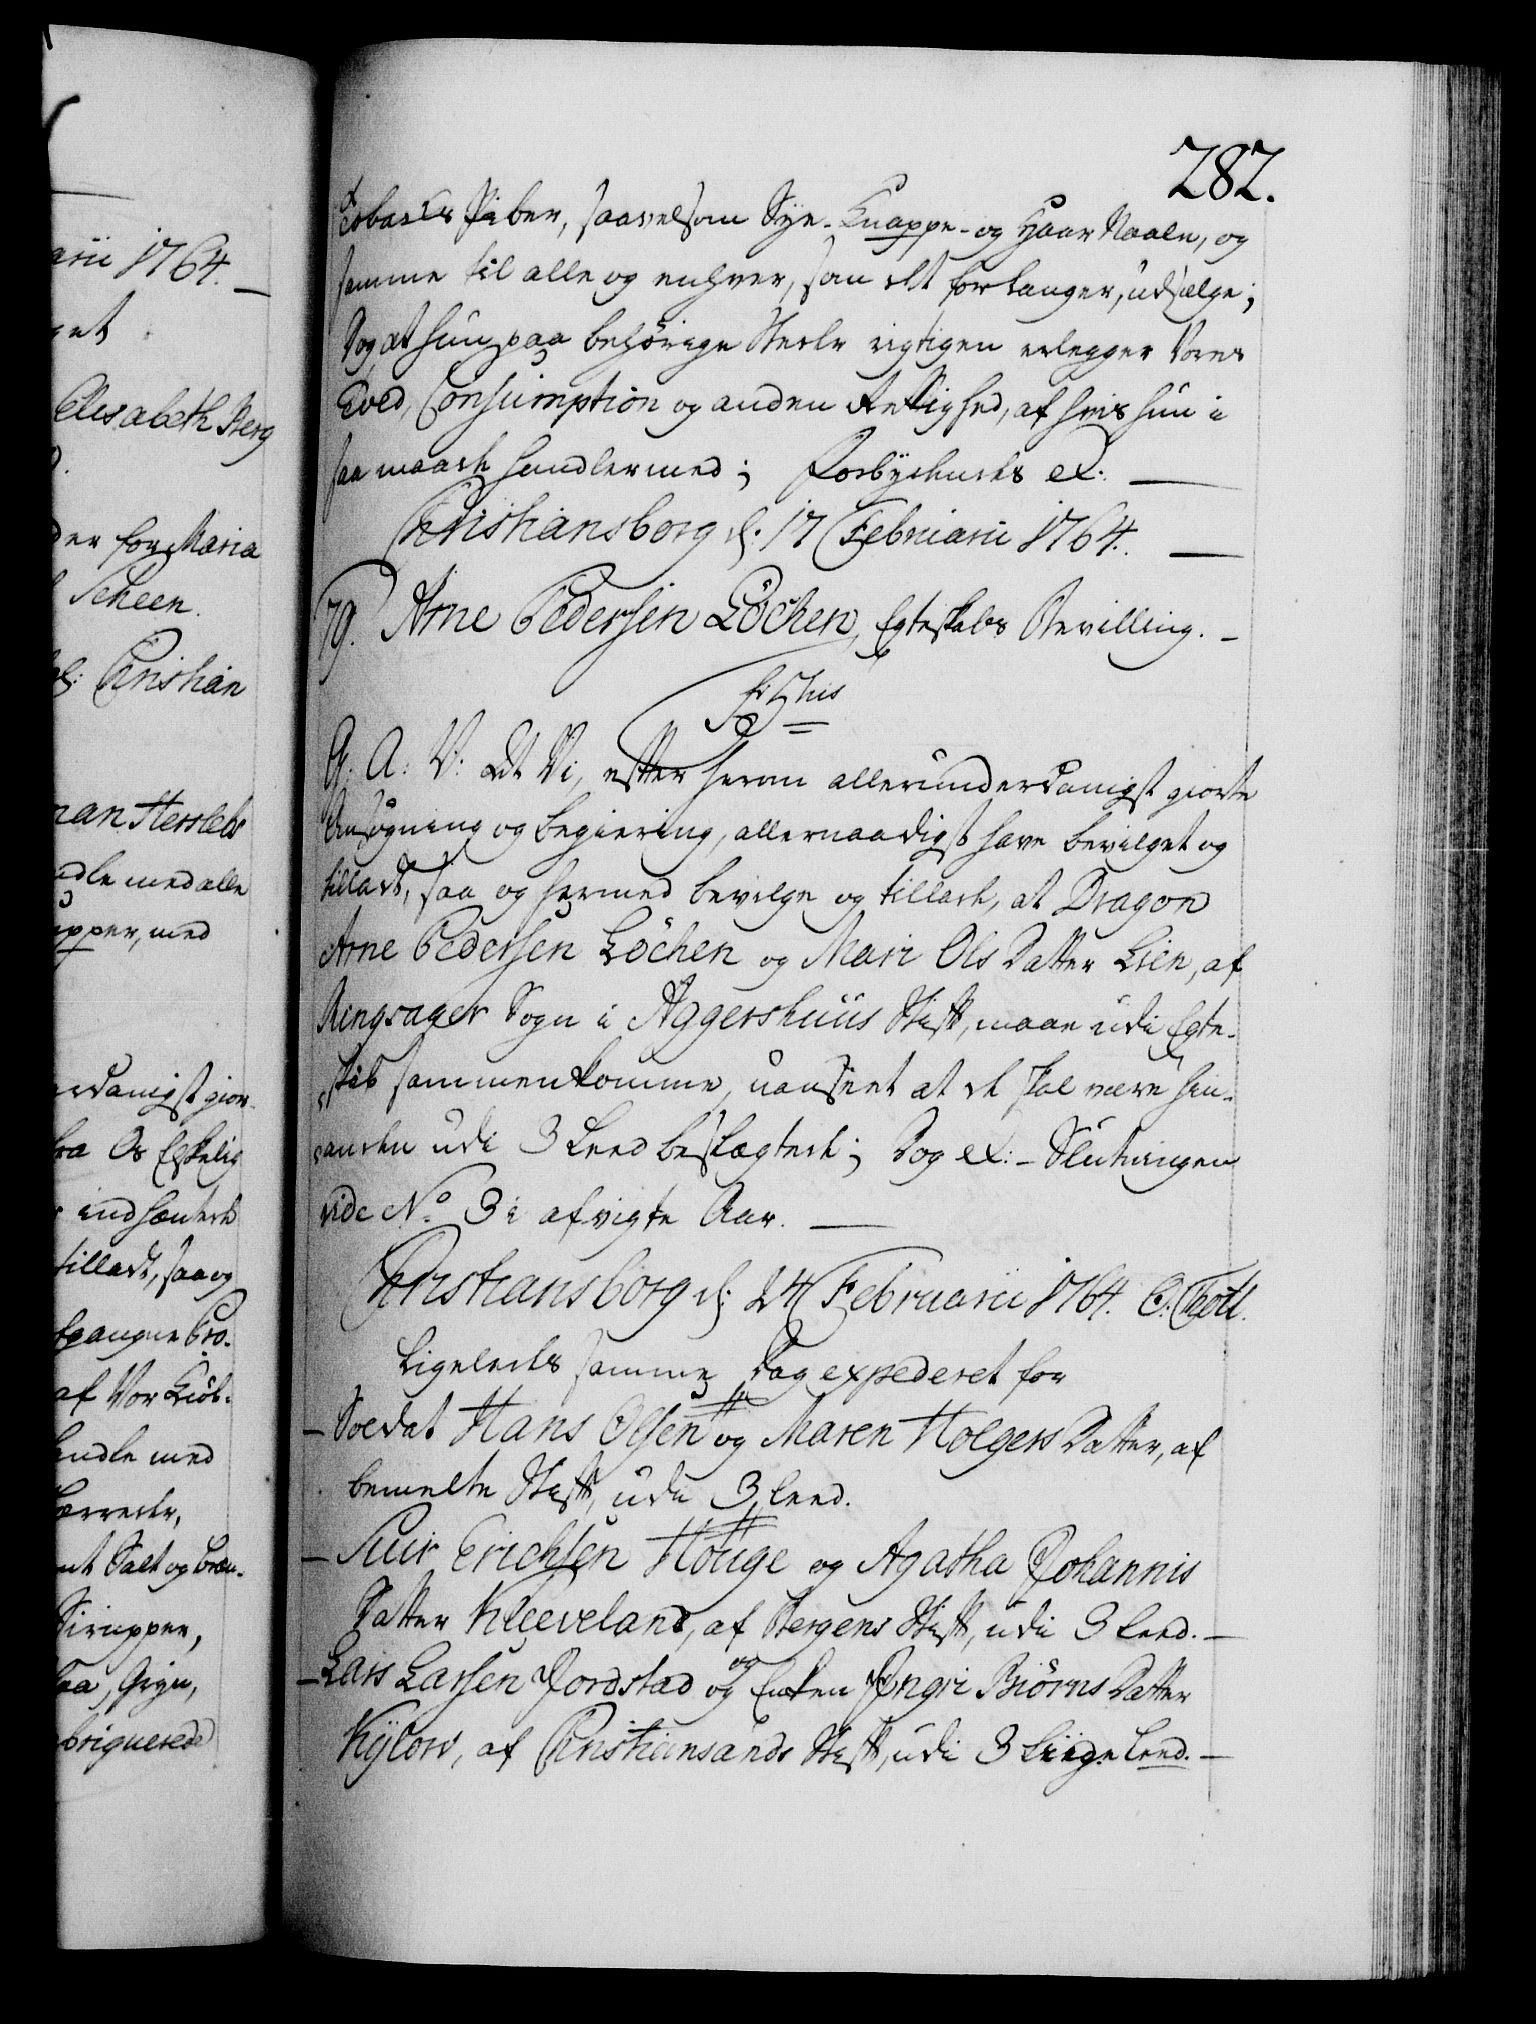 arii 1764.
get
Elisabeth Berg
der for Maria
Scheen.
Christian
man Herslebs
ndle med alle
upper, med
erdanigst gior-
fra Os Egtelig
indhændede
tilladt, saa og
fgangne Pro-
af Vor Kiøb-
handle med
Lærreder,
mt Salt og Bræn-
Sirupper,
Taa, Gryn,
briquerede
282.
Tobaks Piber, saavelsom Sye- Knappe- og Haar Naale, og
samme til alle og enhver, som det forlanger, udsælge;
Dog at hun paa behørige Steder rigtigen erlegger Vores
Told, Consumption og anden Rettighed, af hvis hun i
saa maade handler med; Forbydendes etc.
Christiansborg d: 17 Februarii 1764.
79. Arne Pedersen Löchen, Egteskabs Bevilling.
fr 5tus
G: A: V: At Vi, efter herom allerunderdanigst giorte
Ansøgning og begiering, allernaadigst have bevilget og
tilladt, saa og hermed bevilge og tillade, at Dragon
Arne Pedersen Löchen og Mari Ols Datter Lien, af
Ringsager Sogn i Aggershuus Stift, maae udi Egte-
skab sammenkomme, uanseet at de skal være hin-
anden udi 3 Leed beslægtede; Dog etc: - Slutningen
vide No 3 i afvigte Aar.
Christiansborg d: 24 Februarii 1764. O: Thott.
Ligeledes samme Dag expederet for
- Soldat Hans Olsen og Maren Holgers Datter, af
bemelte Stift, udi 3 Leed.
- Siur Erichsen Houge og Agatha Johannis
Datter Kleeveland, af Bergens Stift, udi 3 Leed.
- Lars Larsen Jordstad og Enken Ingri Biörns Datter
og
Kylow, af Christiansands Stift, udi 3 Liige Leed.